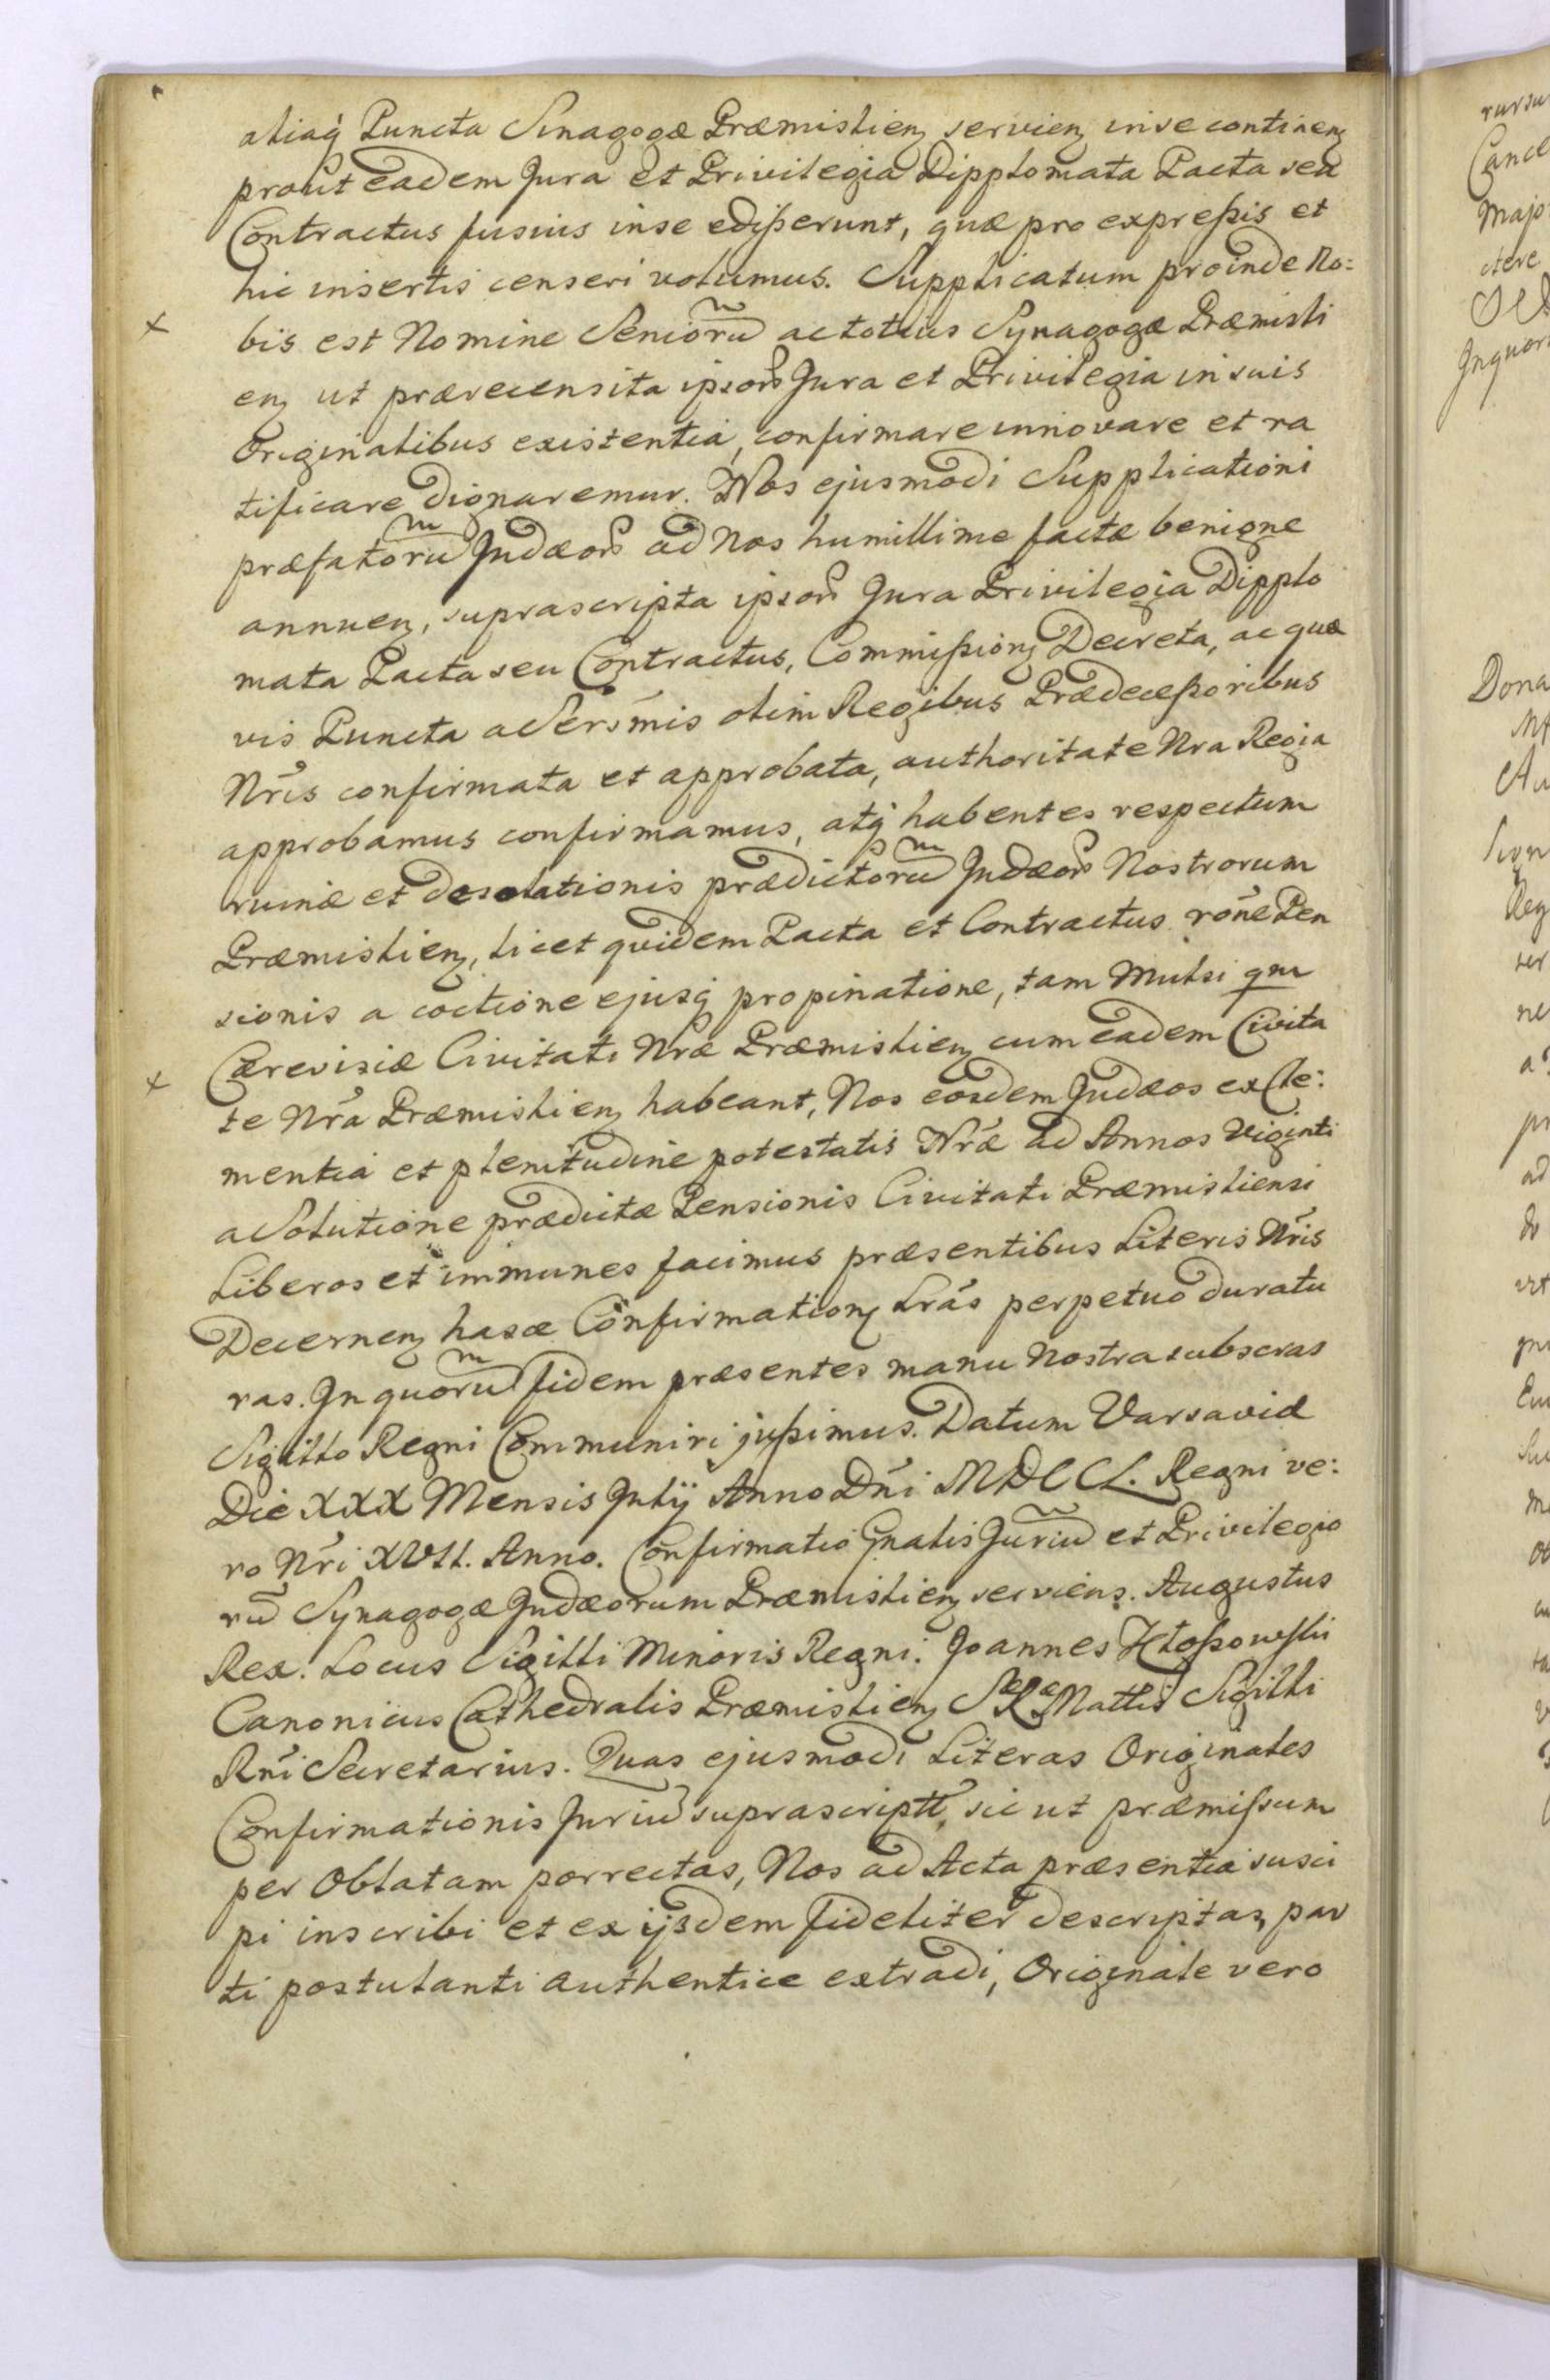 aliaq́ Puncta Sinagogæ Præmislien̄ servien̄ in se continen̄
prout eadem Jura et Privilegia Dipplomata Pacta seu
Contractus fusius in se edisserunt, quæ pro expressis et
hic insertis censeri volumus. Supplicatum proinde No:
bis est Nomine Seniorũ ac totius Synagogæ Præmisli
en̄ ut prærecensita ipsor̃ Jura et Privilegia in suis
Originalibus existentia, confirmare innovare et ra
tificare dignaremur. Nos ejusmodi Supplicationi
præfatorũ Judæor̃ ad Nos humillime factæ benigne
annuen̄, suprascripta ipsor̃ Jura Privilegia Dipplo
mata Pacta seu Contractus, Commission̄ Decreta, ac quæ
vis Puncta a Serśmis olim Regibus Prædecessoribus
Nŕis confirmata et approbata, authoritate Nra Regia
approbamus confirmamus, atq́ habentes respectum
ruinæ et desolationis prædictorũ Judæor̃ Nostrorum
Præmislien̄, licet quidem Pacta et Contractus rońe Pen
sionis a coctione ejusq́ propinatione, tam Mulsi qm
Cærevisiæ Civitati Nŕæ Præmislien̄ cum eadem Civita
te Nŕa Præmislien̄ habeant, Nos eosdem Judæos ex Cle:
mentia et plenitudine potestatis Nŕæ ad Annos Viginti
a Solutione prædictæ Pensionis Civitati Præmisliensi
Liberos et immunes facimus præsentibus Literis Nŕis
Decernen̄ hasce Confirmation̄ Lŕas perpetuo duratu
ras. In quorũ fidem præsentes manu Nostra subscras
Sigillo Regni Communiri jussimus. Datum Varsaviæ
Die XXX Mensis Julij Anno Dńi MDCCL. Regni ve:
ro Nŕi XVII. Anno. Confirmatio Gnalis Juriũ et Privilegio
rũ Synagogæ Judæorum Præmislien̄ serviens. Augustus
Rex. Locus Sigilli Minoris Regni. Joannes Kłossowski
Canonicus Cathedralis Præmislien̄ S R Mattis Sigilli
Rńi Secretarius. Quas ejusmodi Literas Originales
Confirmationis Juriũ suprascriptt, sic ut præmissum
per Oblatam porrectas, Nos ad Acta præsentia susci
pi inscribi et ex ijsdem fideliter descriptas, par
ti postulanti authentice extradi, Originale vero